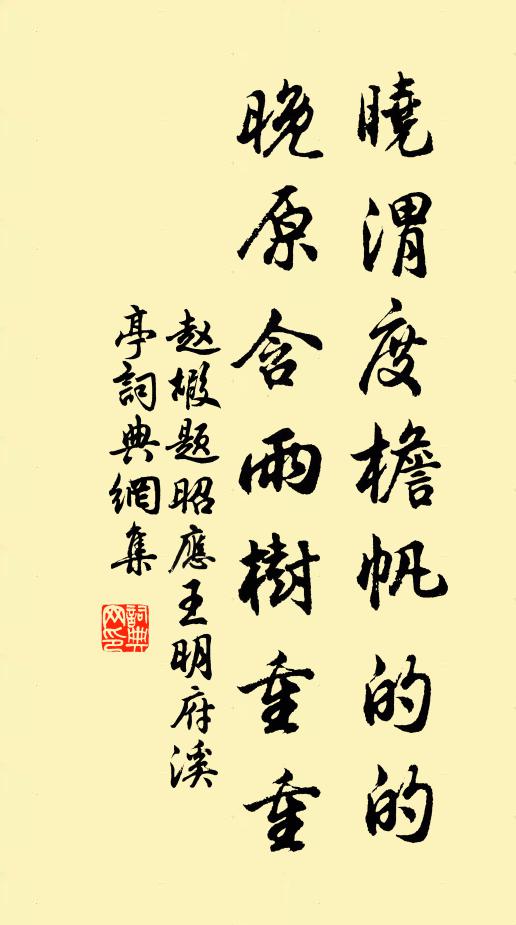 曉渭度檐帆的的
晚原含雨樹重重
赵嘏题昭應王明府溪
亭詞典網集
詞典网印